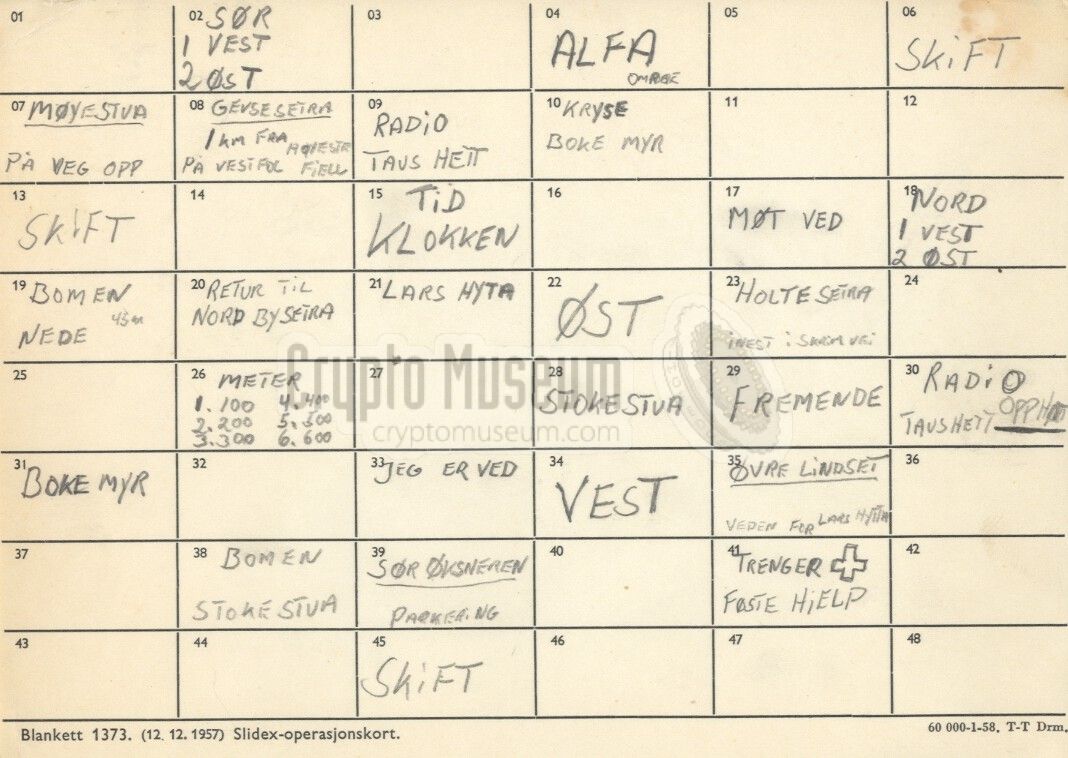 01
02 SØR
1 VEST
2 ØST
03
04
ALFA
OMRÅDE
05
06
SKiFT
07 MØYESTUA
PÅ VEG OPP
08 GEVSESETRA
1 KM FRA
PÅ VESTFOL FJELL
09
RADiO
TAUS HETT
10 KRYSE
BOKE MYR
11
12
13
SKiFT
14
15 TiD
KLOKKEN
16
17
MØT VED
18 NORD
1 VEST
2 ØST
19 BOMEN
NEDE
20 RETUR TiL
NORD BYSETRA
21 LARS HYTA
22
ØST
23 HOLTESETRA
i SKRIMVEi
24
25
26 METER
1. 100 4. 400
2. 200 5. 500
3. 300 6. 600
27
28
STOKESTUA
29
FREMENDE
30 RADiO
TAUSHETT OPPHØRT
31
BOKE MYR
32
33 JEG ER VED
34
VEST
35 ØVRE LiNDSET
VEDEN FOR LARS HYTTA
36
37
38 BOMEN
STOKESTUA
39
SØR ØKSNEREN
PARKERiNG
40
41 TRENGER
FØSTE HiELP
42
43
44
45
SKiFT
46
47
48
Crypto Museum
cryptomuseum.com
Blankett 1373. (12. 12. 1957) Slidex-operasjonskort.
60 000-1-58. T-T Drm.